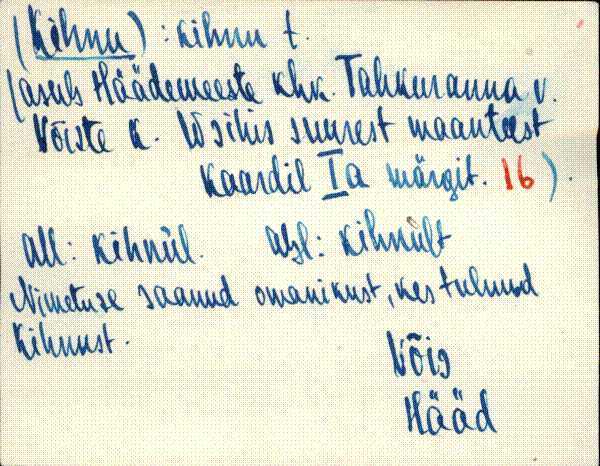 (Kihnu) : Kihnu t.
(asub Häädemeeste khk. Tahkuranna v.
Võiste k. W silus suurest maanteest
kaardil Ia märgit. 16).
all: kihnül. abl: kihnült
Nimetuse saanud omanikust, kes tulnud
Kihnust.
Võis
Hääd